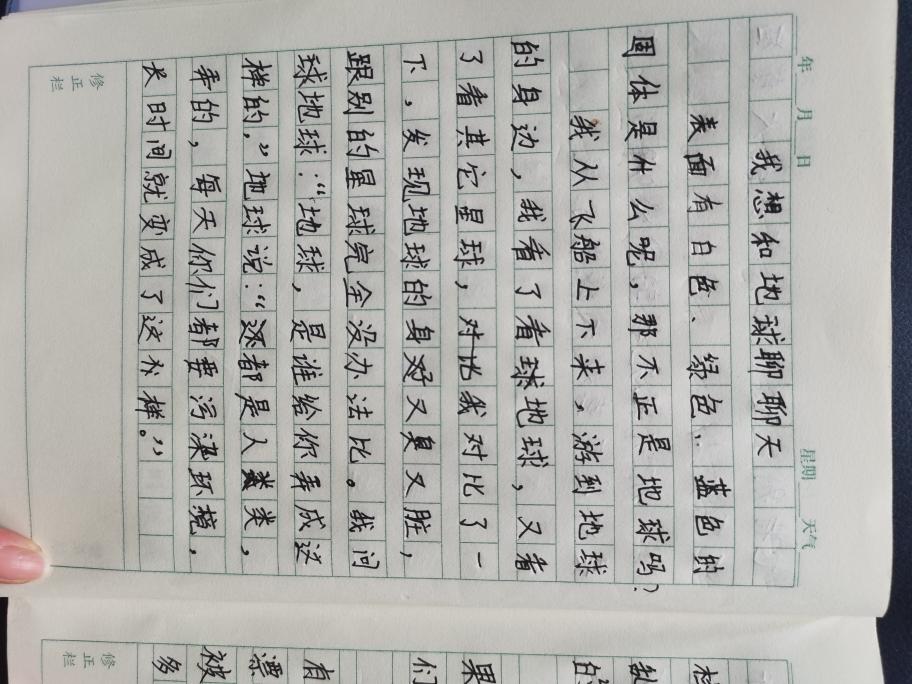 年 月 日 星期 天气
我想和地球聊聊天
表面有白色、绿色、蓝色的
固体是什么呢,那不正是地球吗?
我从飞船上下来,游到地球
的身边,我看了看球地球,又看
了看其它星球,对比我对比了一
下,发现地球的身对又臭又脏,
跟别的星球完全没办法比。我问
球地球:“地球,是谁给你弄成这
样的,”地球说:“还都是人类类,
弄的,每天你们都要污染环境,
长时间就变成了这补样。”
修正栏
修正栏
果
们
有
漂
被
多